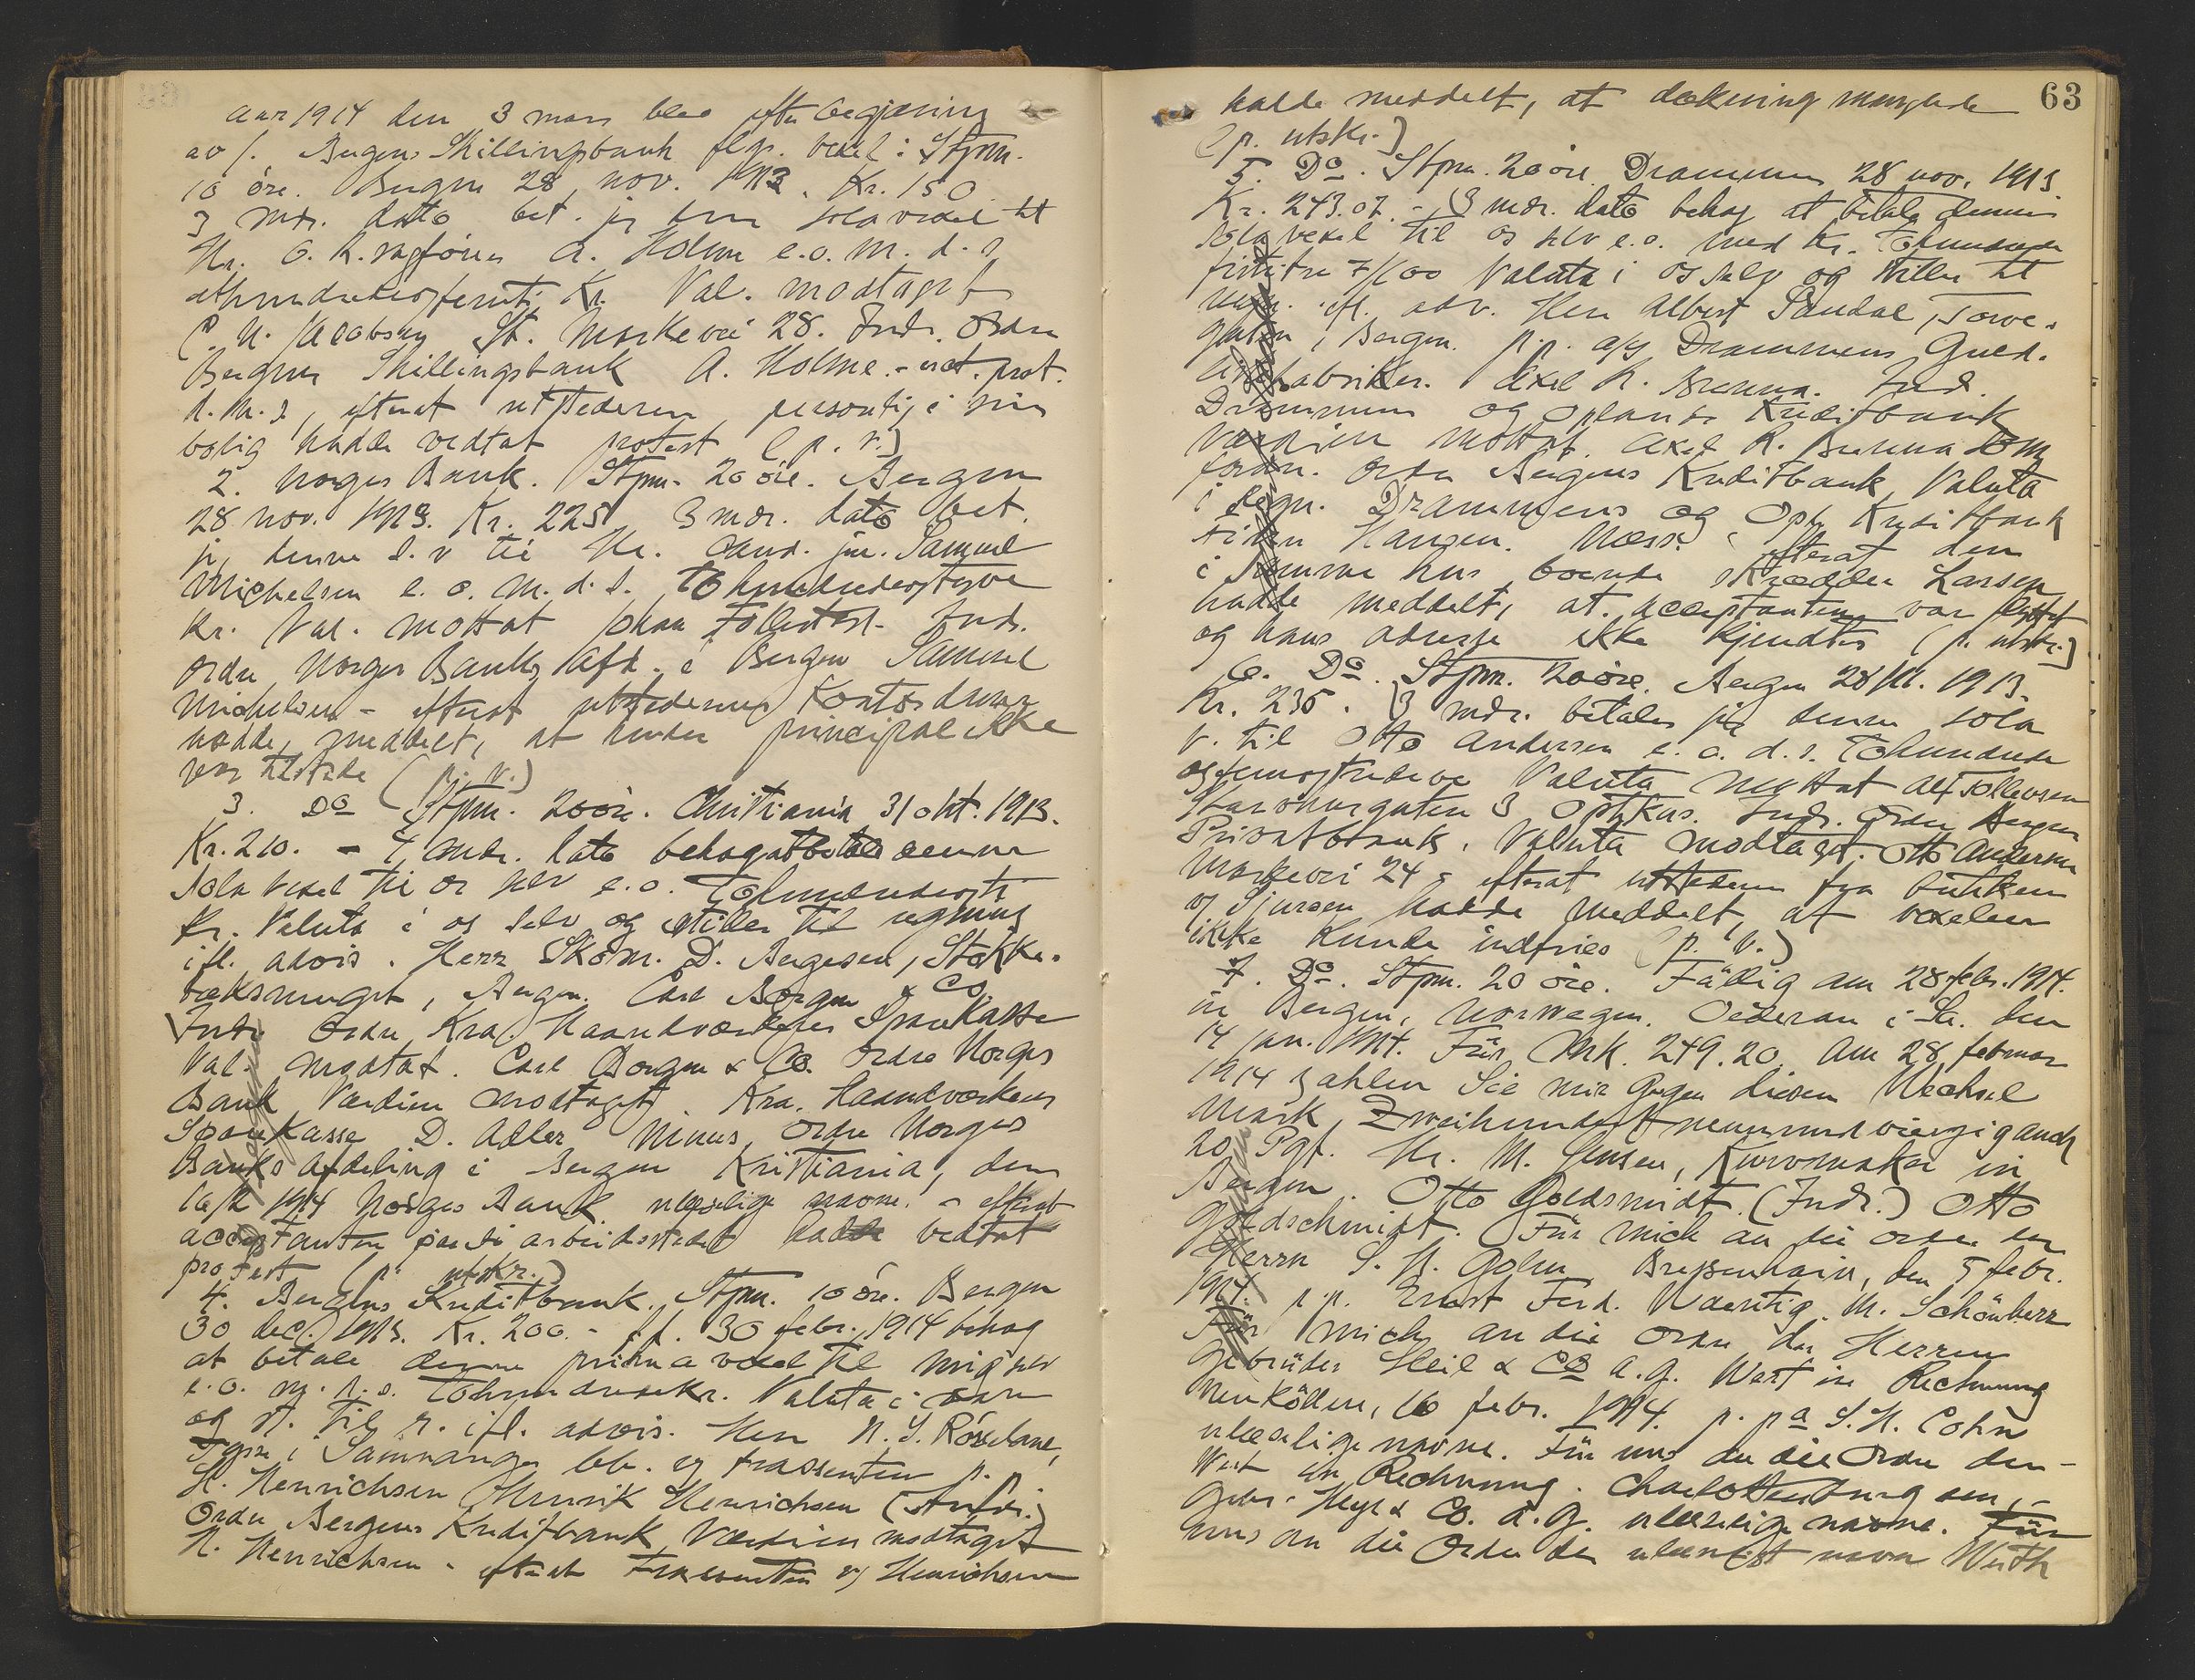 Aar 1914 den 3 mars blev efter begjæring
av 1. Bergens Skillingsbank flg. vexel: Stpm.
10 öre. Bergen 28 nov. 1913. Kr. 150
3 mdr. dato bet. jeg denne solavexel til
Hr. O. R. sagfører A. Holme e.o. m. d. s.
ethundredeogfemti Kr. Val. modtaget
C. N. Jacobsen St. Markevei 28. Inds. Ordre
Bergens Skillingsbank A. Holme. - not. prot.
d. m. s, efterat utstederen personlig i sin
bolig hadde vedtat protest (p. v.)
2. Norges Bank. Stpm. 20 öre. Bergen
28 nov. 1913. Kr. 225 3 mdr. dato bet.
jeg denne s. v til Hr. Cand. jur. Samuel
Michelsen e. o. m. d. s. Tohundredeogtyve
Kr. Val. mottat Johan Inds.
Ordre Norges Banks Afd. i Bergen Samuel
Michelsen - efterat utstederens Kontordame
hadde meddelt, at hendes principal ikke
var tilstede (p. v.)
3. Do Stpm. 20 öre. Christiania 31 okt. 1913.
Kr. 210. - 4 mdr. dato behag at betale denne
Sola vexel til os selv e.o. Tohundredeogti
Kr. Valuta i os selv og stilles til regning
ifl. advis. Herr Skom. D. Bergesen, Stokke-
bæksmuget, Bergen. Carl Borgen & Co.
Inds Ordre Kra. Haandværkeres Sparekasse
Val. modtat. Carl Borgen & Co. Ordre Norges
Bank Værdien modtaget. Kra. Haandverkeres
Sparekasse D. Adler Ordre Norges
Banks afdeling i Bergen Kristiania, den
16/2 1914 Norges Bank ulæselige navne. - efterat
acceptanten paa sit arbeidssted hadde vedtat
protest (p. utskr.)
4. Bergens Kreditbank. Stpm. 10 öre. Bergen
30 dec. 1913. Kr. 200. - pr. 30 febr. 1914 behag
at betale denne prima vexel til mig selv
e.o. m. d. s. Tohundredekr. Valuta i
og st. til r. ifl. advis. Herr N. S. Röseland,
i Samnanger bb. og trassenten p. p
H. Henrichsen Henrik Henrichsen (Inds.)
Ordre Bergens Kreditbank Værdien modtaget
H. Henrichsen - efterat trassenten v/ Henrichsen
63
hadde meddelt, at dækning manglede
(p. utskr.)
5. Do. Stpm. 20 öre. Drammen 28 nov. 1913
Kr. 243.07. - 3 mdr. dato behag at betale denne
Sola vexel til os selv e.o. med Kr. Tohundrede
førtitre 7/100 Valuta i os selv og stilles til
regn. ifl. adv. Herr Albert Sandal, Torve-
gaten, Bergen. p.p. a/s Drammens Guld-
listefabriker. Axel R. Brenna. Inds.
Drammens og Oplands Kreditbank
Værdien mottat. Axel R. Brenna som
foran. Ordre Bergens Kreditbank, Valuta
i regn. Drammens og Opl. Kreditbank
efterat den
i samme hus boende skrædder Larsen
hadde meddelt, at acceptanten var flyttet
og hans adresse ikke kjendtes (p. utskr.)
6. Do. Stpm. 20 öre. Bergen 28/11. 1913.
Kr. 235. 3 mdr. betaler jeg denne sola
v. til Otto Andersen e. o. d. s. Tohundrede
ogfemogtredeve Valuta mottat Alf Tollevsen
3 Optikus. Inds. Ordre Bergens
Privatbank. Valuta modtaget. Otto Andersen
Markevei 24 - efterat utstederen fra butikken
v/ Sjursen hadde meddelt, at vexelen
ikke kunde indfries (p. v.)
7. Do. Stpm. 20 öre. Fällig am 28 febr. 1914.
in Bergen, Norwegen. Oederan i Sa. den
14 jan. 1914. Für Mk. 249.20. Am 28 februar
1914 zahlen Sie mir gegen diesen Wechsel
Mark Zweihundertneunundvierzig auch
20 Pgf. Hr. M. Jensen, Kurvmaker in
Bergen. Otto Goldsmidt. (Inds.) Otto
Goldschmidt. Für mich an die Order des
Herrn S. H. Cohn, den 5 febr.
1914. p.p. Ernst Ferd. Waentig. M. Schönherr
Für mich an die Ordre der Herren
Gebrüder Heil & Co A.G. Wert in Rechnung
Neukölln, 16 febr. 1914. p. pa S. H. Cohn
ulæselige navne. Für uns an die Ordre den -
Wert in Rechnung. Charlottenburg den, -
Gebr. Heyl & Co. A.G. ulæselige navne. Für
uns an die Ordre der ulæselig navn Werth